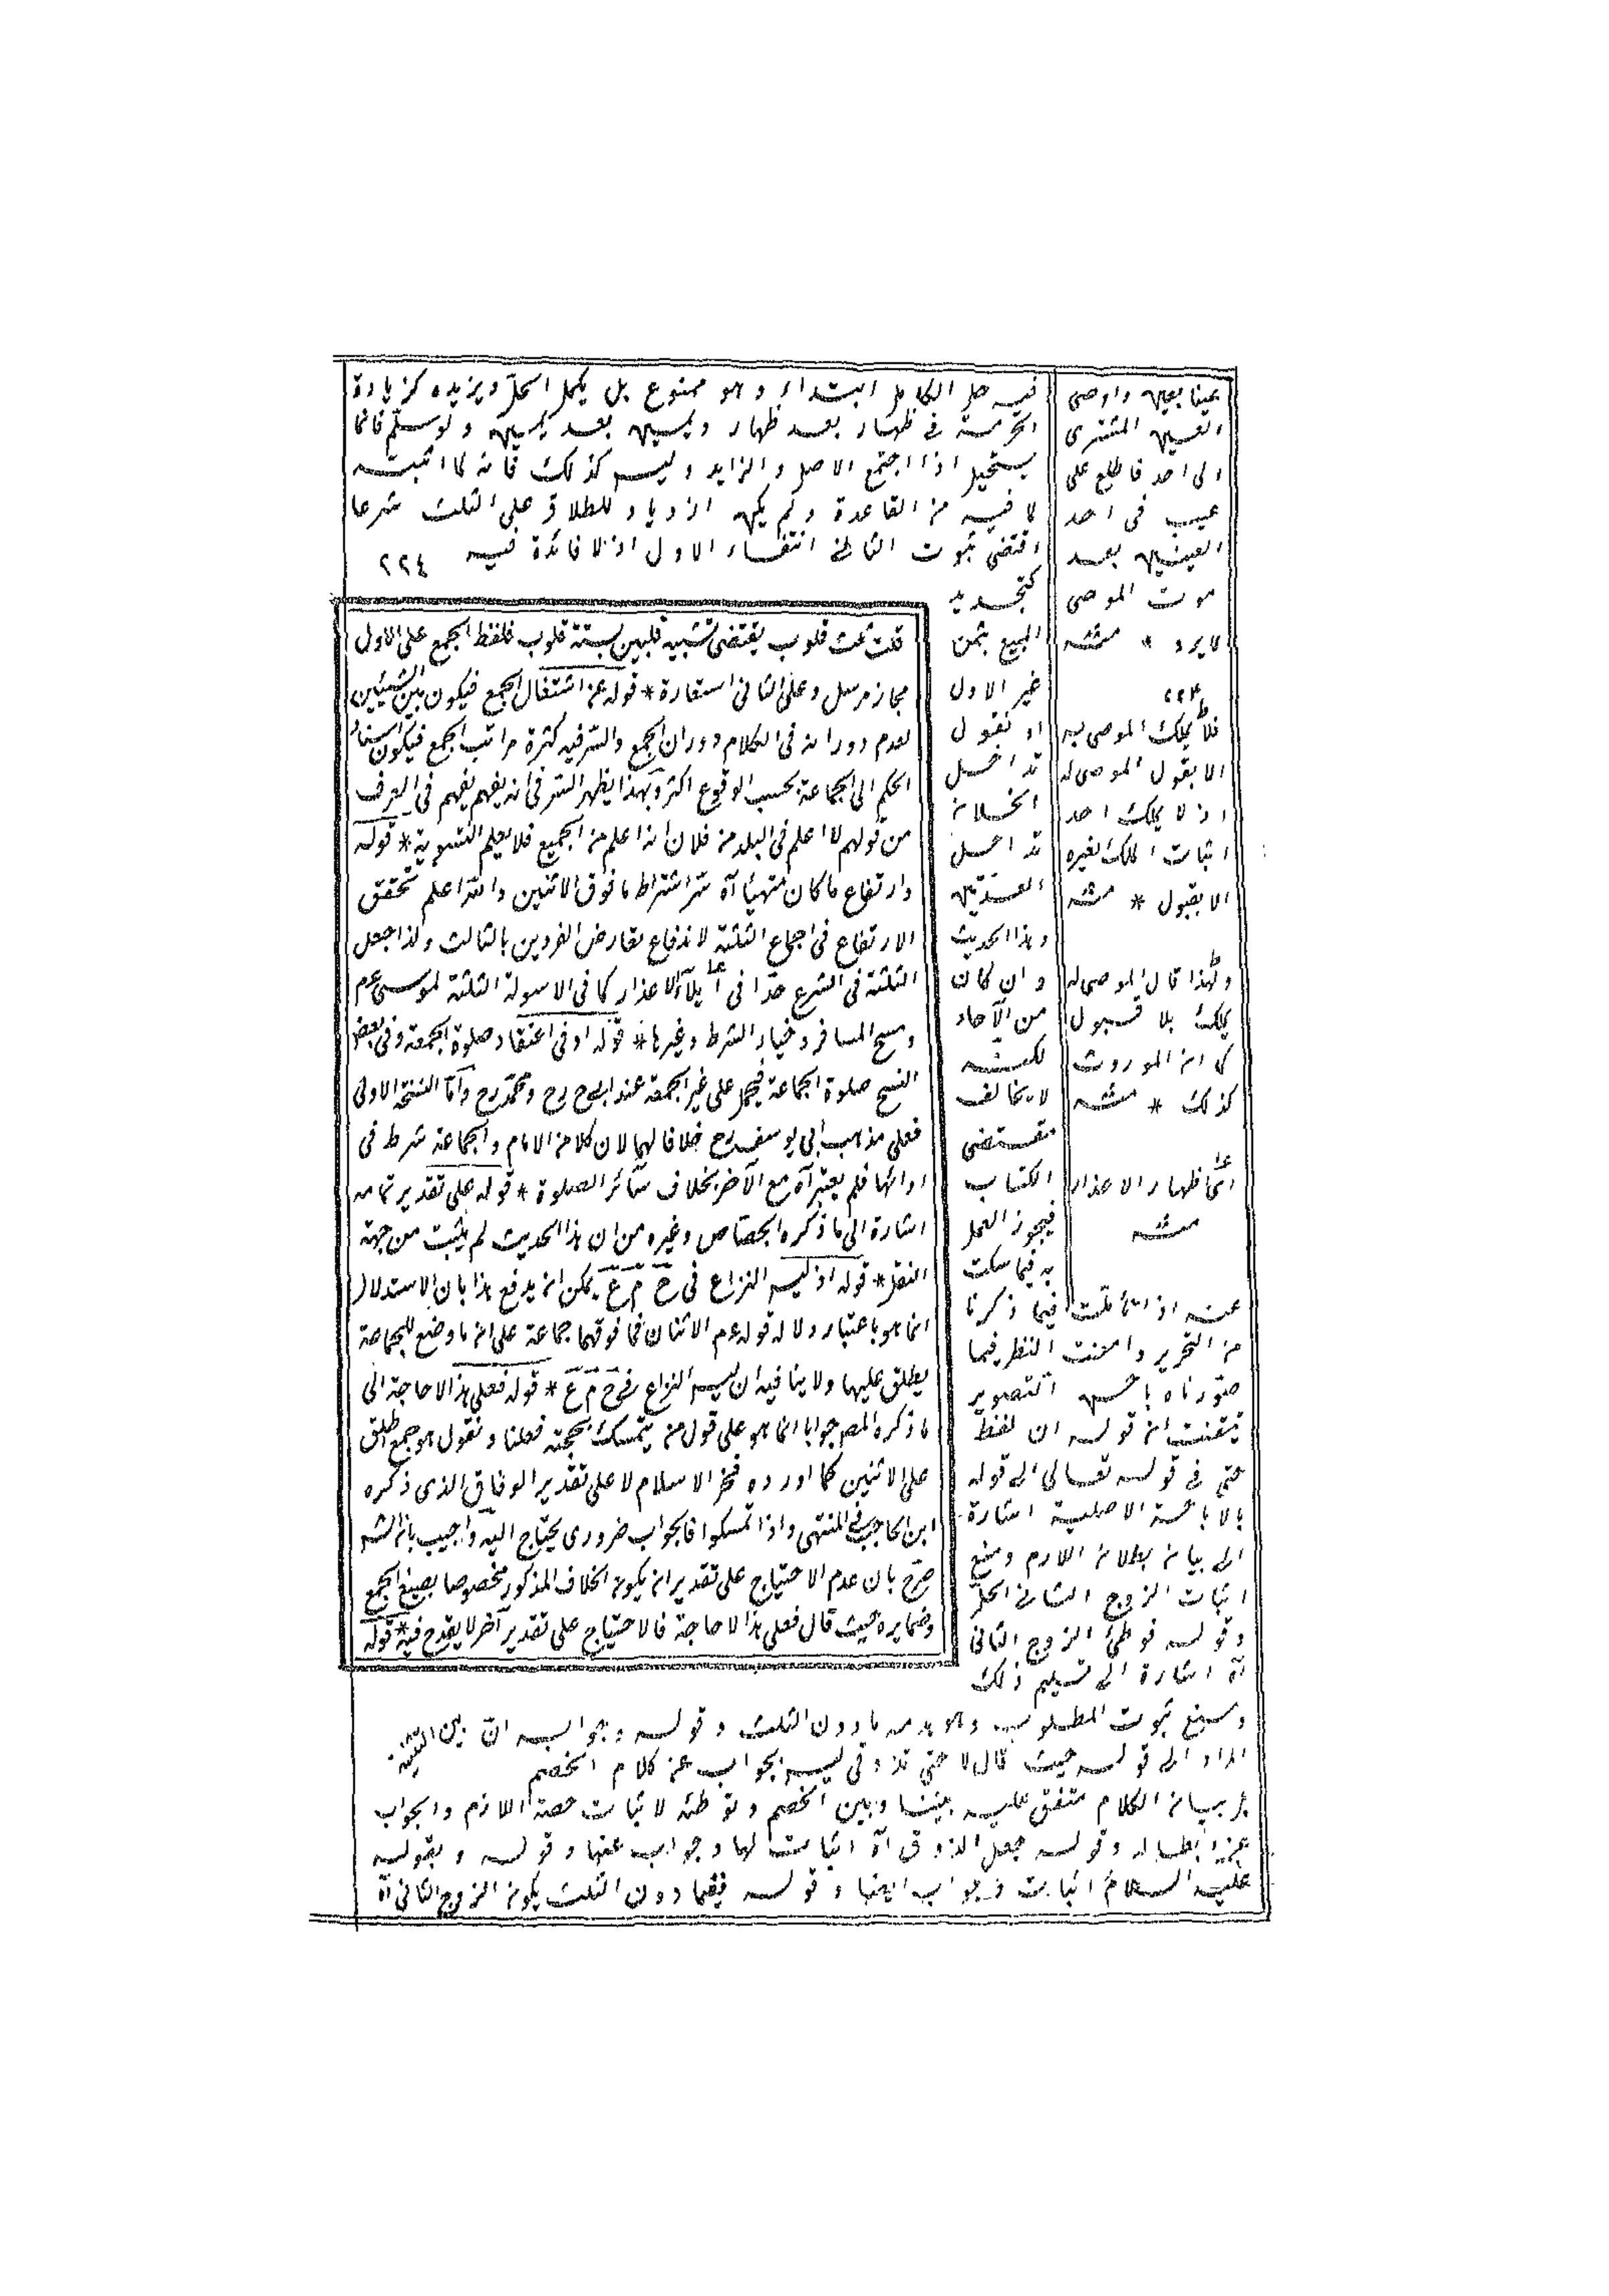 فيه حل الكامل ابتداء وهو ممنوع بل يكمل الحل ويزيده كزيادة
الحرمة فى ظهار بعد ظهار ويمين بعد يمين ولو سلم فانما
يستحيل اذا اجتمع الاصل والزايد وليس كذلك فانه لما اثبت
لا فيه من القاعدة ولم يكن ازدياد للطلاق على الثلث شرعا
اقتضى ثبوت الثانى انتفاء الاول اذ لا فائدة فيه ٢٢٤
كتجديد
البيع بثمن
غير الاول
او نقول
تداخل
العدتين
وهذا الحديث
وان كان
من الآحاد
لكنه
لا يخالف
مقتضى
الكتاب
فيجوز العمل
به فيما سكت
عنه اذا تأملت فيما ذكرنا
من التحرير وامعنت النظر فيما
صورناه باحسن التصوير
تيقنت ان قوله ان لفظ
حتى فى قوله تعالى الى قوله
بالاباحة الاصلية اشارة
الى بيان بطلان اللازم ومنع
اثبات الزوج الثانى الحل
وقوله فوطئ الزوج الثانى
آه اشارة الى تسليم ذلك
ومنع ثبوت المطلوب وهو هدم ما دون الثلث وقوله وجوابه ان بين
المراد الى قوله حيث قال لا حتى تذوقى ليس الجواب عن كلام الخصم
بل بيان الكلام متفق عليه بيننا وبين الخصم وتوطئة لاثبات اللازم والجواب
عن ابطاله وقوله جعل الذوق آه اثبات لها وجواب عنها وقوله وبقوله
عليه السلام اثبات وجواب ايضا وقوله ففيما دون الثلث يكون الزوج الثانى آه
عينا بعين واوصى
العين المشترى
الى احد فاطلع على
عيب فى احد
العينين بعد
موت الموصى
لا يرد * منه
٢٢٤
فلا يملك الموصى به
الا بقبول الموصى له
اذ لا يملك احد
اثبات الملك لغيره
الا بقبول * منه
ولهذا قال الموصى له
يملك بلا قبول
كما ان الموروث
كذلك * منه
اى اظهار الاعذار
منه
قلت ثلث قلوب يقتضى تشبيه قلبين بستة قلوب فلفظ الجمع على الاول
مجاز مرسل وعلى الثانى استعارة * قوله عن اشتغال الجمع فيكون بين الشيئين
لعدم دورانه فى الكلام دوران الجمع والسر فيه كثرة مراتب الجمع فيكون اسناد
الحكم الى الجماعة بحسب الوقوع اكثر وبهذا يظهر السر فى انه يفهم فى العرف
من قولهم لا اعلم فى البلد من فلان انه اعلم من الجميع فلا يعلم التسوية * قوله
وارتفاع ما كان متهيئا آه سر اشتراط ما فوق الاثنين والله اعلم تحقق
الارتفاع فى اجماع الثلثة لاندفاع تعارض الفردين بالثالث ولذا جعل
الثلثة فى الشرع حدا فى ابلاء الاعذار كما فى الاسولة الثلثة لموسى عم
ومسح المسافر وخيار الشرط وغيرها * قوله او فى انعقاد صلوة الجمعة وفى بعض
النسخ صلوة الجماعة فيحمل على غير الجمعة عند ابى ح رح ومحمد رح واما النسخة الاولى
فعلى مذهب ابى يوسف رح خلافا لهما لان كلا من الامام والجماعة شرط فى
ادائها فلم يعتبر آه مع الآخر بخلاف سائر الصلوة * قوله على تقدير تمامه
اشارة الى ما ذكره الجصاص وغيره من ان هذا الحديث لم يثبت من جهة
النقل * قوله اذ ليس النزاع فى ج م ع يمكن ان يدفع هذا بان الاستدلال
انما هو باعتبار دلالة قوله عم الاثنان فما فوقهما جماعة على ان ما وضع للجماعة
يطلق عليهما ولا ينافيه ان ليس النزاع فى ج م ع * قوله فعلى هذا لا حاجة الى
ما ذكره المص جوابا انما هو على قول من يتمسك بحجته فعلنا ونقول هو جمع اطلق
على الاثنين كما اورده فخر الاسلام لا على تقدير الوفاق الذى ذكره
ابن الحاجب فى المنتهى واذا تمسكوا فالجواب ضرورى يحتاج اليه واجيب بان الشه
صرح بان عدم الاحتياج على تقدير ان يكون الخلاف المذكور مخصوصا بصيغ الجمع
وضمايره حيث قال فعلى هذا لا حاجة فالاحتياج على تقدير آخر لا يقدح فيه * قوله